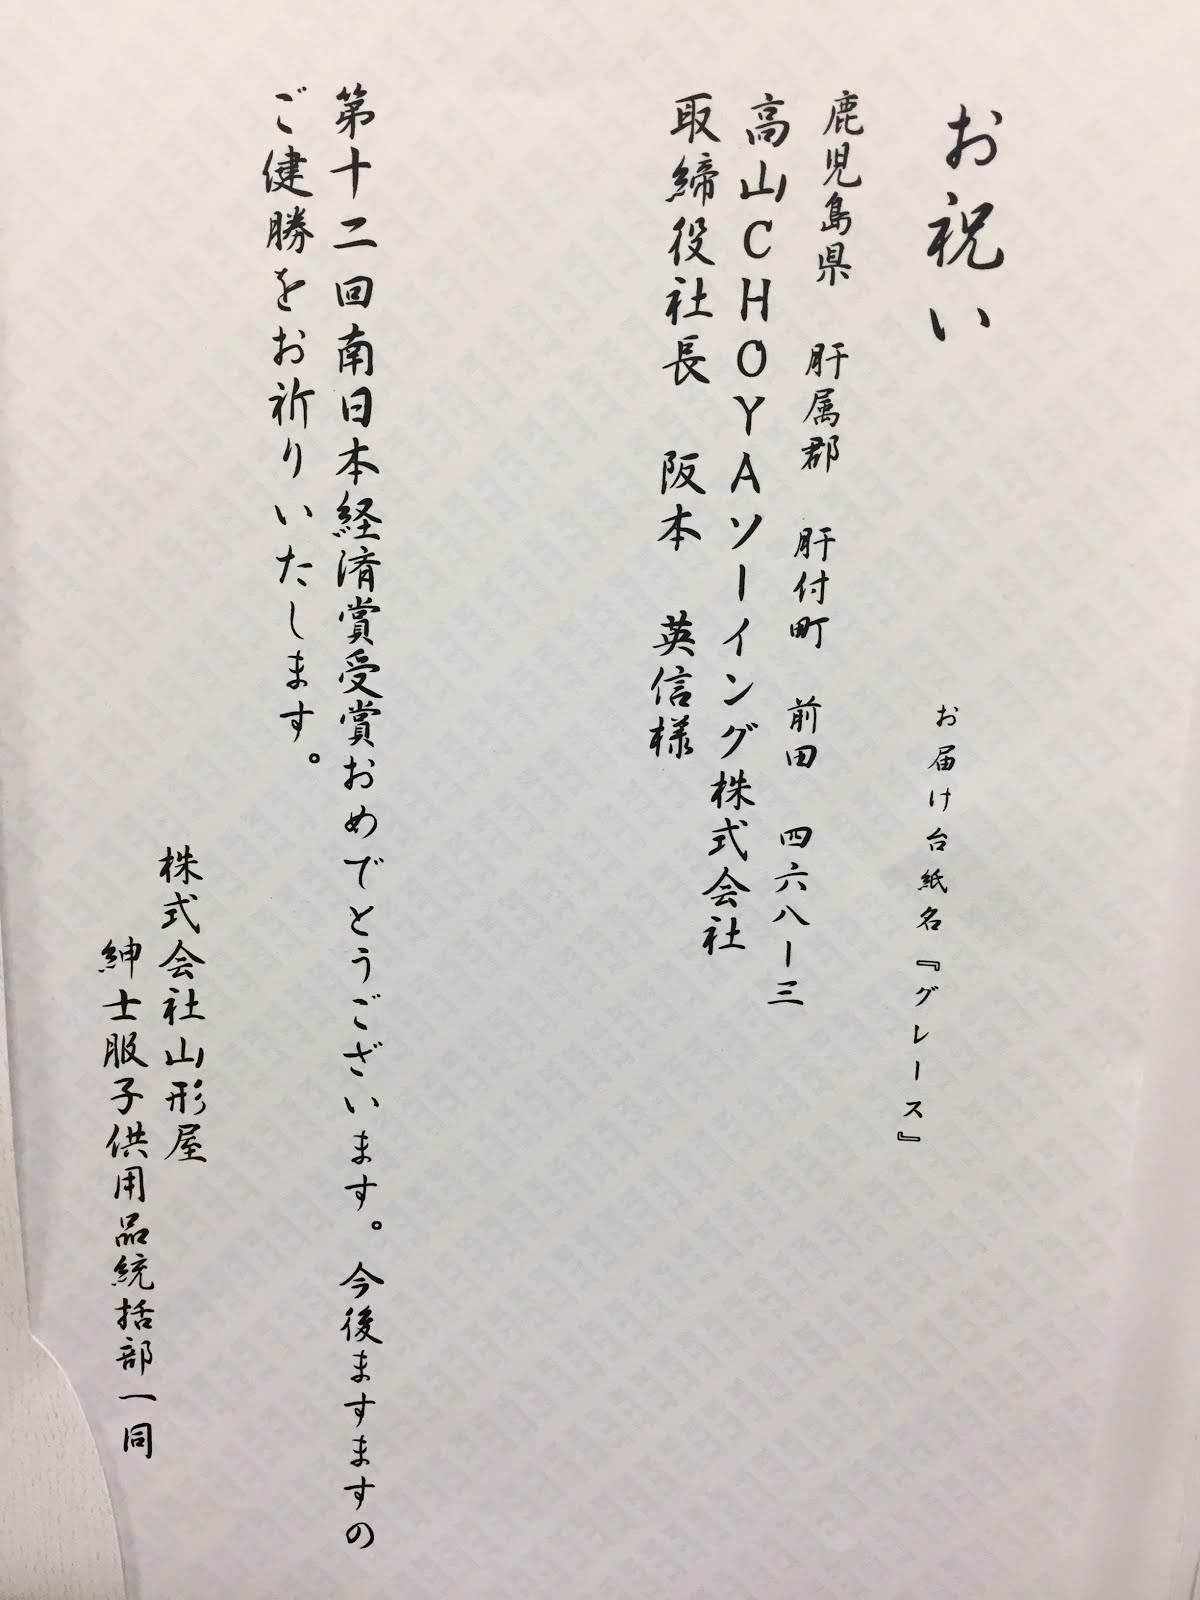 お祝い
お届け台紙名『グレース』
鹿児島県 肝属郡 肝付町 前田 四六八ー三
高山CHOYAソーイング株式会社
取締役社長 阪本 英信様
第十二回南日本経済賞受賞おめでとうございます。今後ますますの
ご健勝をお祈りいたします。
株式会社山形屋
紳士服子供用品統括部一同